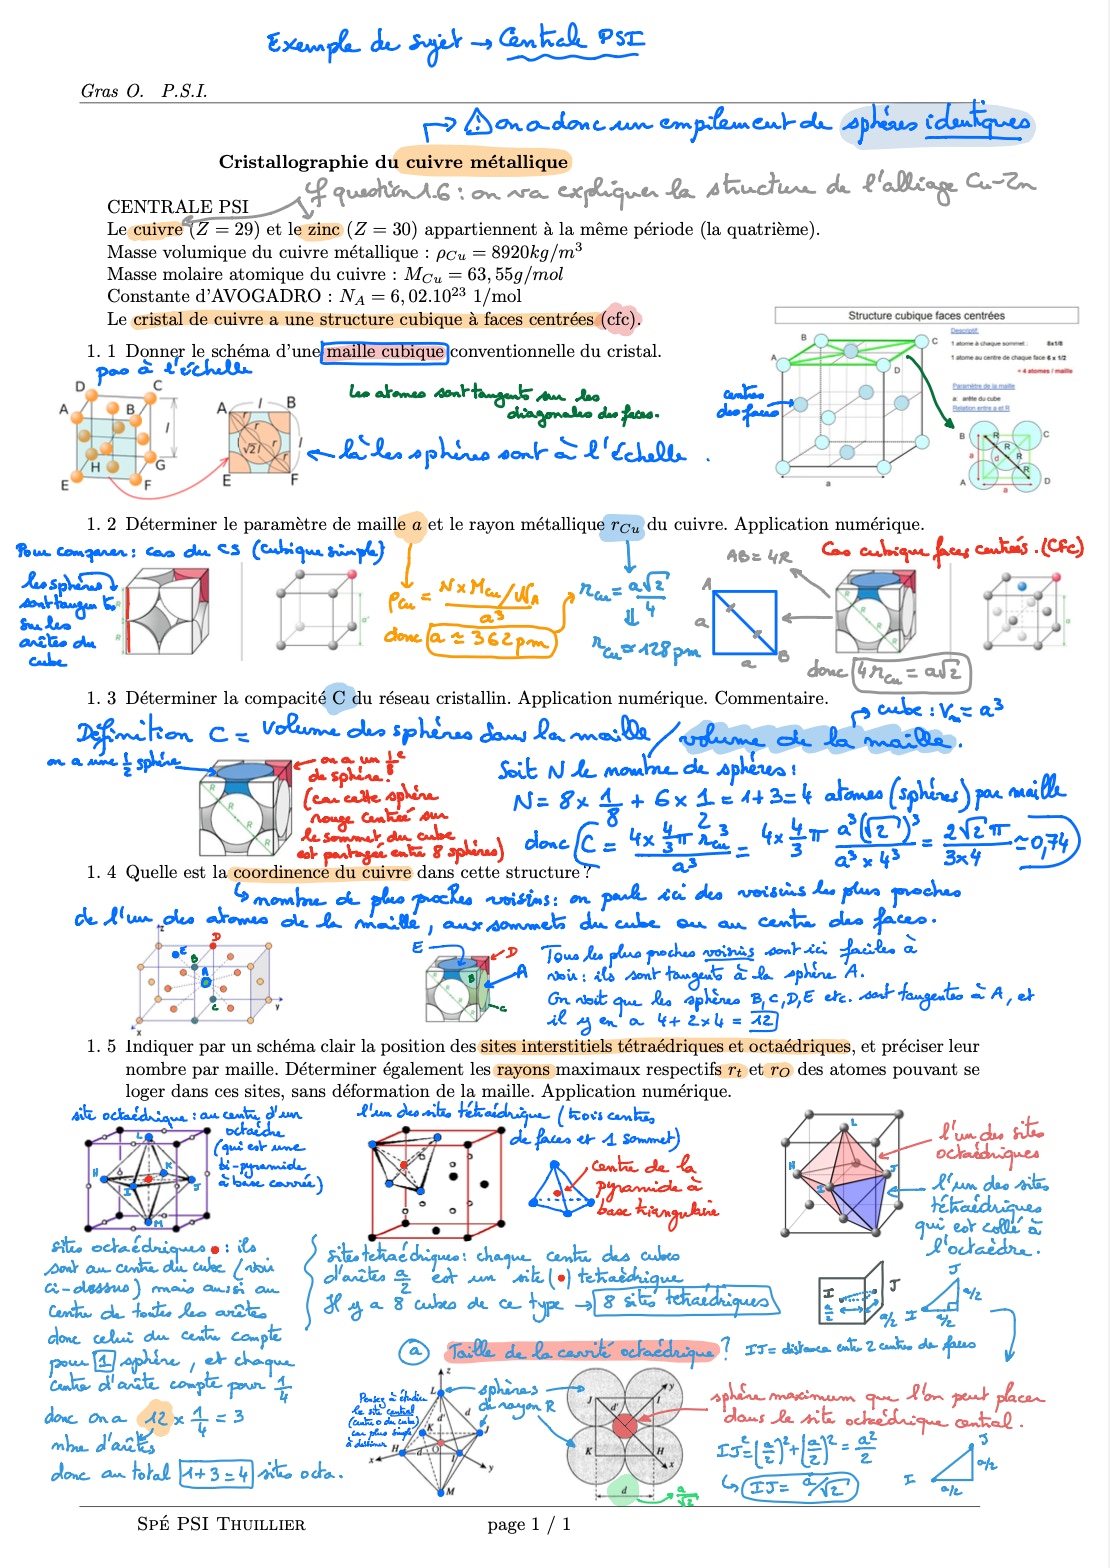 Exemple de sujet → Centrale PSI
Gras O. P.S.I.
→ ⚠ on a donc un empilement de sphères identiques
Cristallographie du cuivre métallique
cf question 1.6 : on va expliquer la structure de l'alliage Cu-Zn
CENTRALE PSI
Le cuivre (Z = 29) et le zinc (Z = 30) appartiennent à la même période (la quatrième).
Masse volumique du cuivre métallique : ρCu = 8920kg/m³
Masse molaire atomique du cuivre : MCu = 63,55g/mol
Constante d'AVOGADRO : NA = 6,02.10²³ 1/mol
Le cristal de cuivre a une structure cubique à faces centrées (cfc).
Structure cubique faces centrées
Descriptif:
1 atome à chaque sommet : 8x1/8
1 atome au centre de chaque face 6 x 1/2
= 4 atomes / maille
Paramètre de la maille
a: arête du cube
Relation entre a et R
1. 1 Donner le schéma d'une maille cubique conventionnelle du cristal.
pas à l'échelle
les atomes sont tangents sur les
diagonales des faces.
centres
des faces
← là les sphères sont à l'échelle.
1. 2 Déterminer le paramètre de maille a et le rayon métallique rCu du cuivre. Application numérique.
Pour comparer : cas du CS (cubique simple)
AB = 4R
Cas cubique faces centrées. (CFC)
les sphères
sont tangentes
sur les
arêtes du
cube
ρCu = N × MCu/NA / a³
donc a ≃ 362 pm
rCu = a√2/4
⇓
rCu ≃ 128 pm
donc 4rCu = a√2
1. 3 Déterminer la compacité C du réseau cristallin. Application numérique. Commentaire.
→ cube : Vm = a³
Définition C = volume des sphères dans la maille / volume de la maille.
on a une ½ sphère
on a un 1/8e
de sphère!
(car cette sphère
rouge centrée sur
le sommet du cube
est partagée entre 8 sphères)
Soit N le nombre de sphères :
N = 8 × 1/8 + 6 × 1/2 = 1+3 = 4 atomes (sphères) par maille
donc C = 4 × 4/3 π rCu³ / a³ = 4 × 4/3 π a³(√2)³ / a³ × 4³ = 2√2 π / 3×4 ≃ 0,74
1. 4 Quelle est la coordinence du cuivre dans cette structure ?
↳ nombre de plus proches voisins : on parle ici des voisins les plus proches
de l'un des atomes de la maille, aux sommets du cube ou au centre des faces.
Tous les plus proches voisins sont ici faciles à
voir : ils sont tangents à la sphère A.
On voit que les sphères B, C, D, E etc. sont tangentes à A, et
il y en a 4 + 2×4 = 12
1. 5 Indiquer par un schéma clair la position des sites interstitiels tétraédriques et octaédriques, et préciser leur
nombre par maille. Déterminer également les rayons maximaux respectifs rt et rO des atomes pouvant se
loger dans ces sites, sans déformation de la maille. Application numérique.
site octaédrique : au centre d'un
octaèdre
(qui est une
bi-pyramide
à base carrée)
l'un des sites tétraédrique (trois centres
de faces et 1 sommet)
centre de la
pyramide à
base triangulaire
l'un des sites
octaédriques
l'un des sites
tétraédriques
qui est collé à
l'octaèdre.
sites octaédriques • : ils
sont au centre du cube (voir
ci-dessus) mais aussi au
centre de toutes les arêtes
donc celui du centre compte
pour 1 sphère, et chaque
centre d'arête compte pour 1/4
donc on a 12 × 1/4 = 3
nbre d'arêtes
donc au total 1+3 = 4 sites octa.
sites tetraédriques : chaque centre des cubes
d'arêtes a/2 est un site (•) tetraédrique
Il y a 8 cubes de ce type → 8 sites tetraédriques
ⓐ Taille de la cavité octaédrique ?
IJ = distance entre 2 centres de faces
Pensez à étudier
le site central
(centre O du cube)
car plus simple
à dessiner
sphères
de rayon R
sphère maximum que l'on peut placer
dans le site octaédrique central.
IJ² = (a/2)² + (a/2)² = a²/2
↳ IJ = a/√2
Spé PSI Thuillier
page 1 / 1